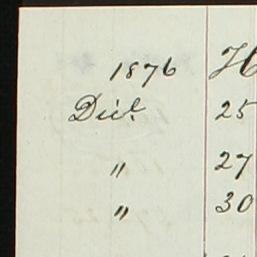 1876 H
Dec. 25
" 27
" 30